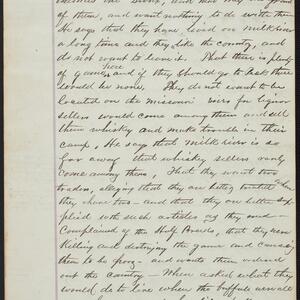 of them, and want nothing to do with them
He says that they have lived on milk river
a long time and they like the country, and
do not want to leave it. That there is plenty
of game here and if they should go to
would be none. They do not want to be
located on the missouri river for liquor
sellers would come among them and sell
them whisky and make trouble in their
camp, He says that milk river is so
far away that whisky sellers rarely
come among them, That they want two
traders, alleging that they are better treated when
they have two - and that they are better sup-
plied with such articles as they need -
Complained of the Half Breeds, that they were
Killing and destroying the game and causing
them to be poor - and wants them ordered
out the country - When asked what they
would do to live when the buffalo were all